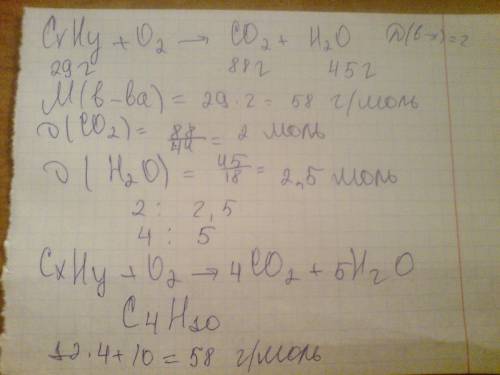 CxHy + O2 → CO2 + H2O D(в-х)=?
29г 88г 45г
М(в-ва) = 29·2 = 58 г/моль
υ(CO2) = 88/44 = 2 моль
υ(H2O) = 45/18 = 2,5 моль
2 : 2,5
4 : 5
CxHy + O2 → 4CO2 + 5H2O
C4H10
12·4+10 = 58 г/моль